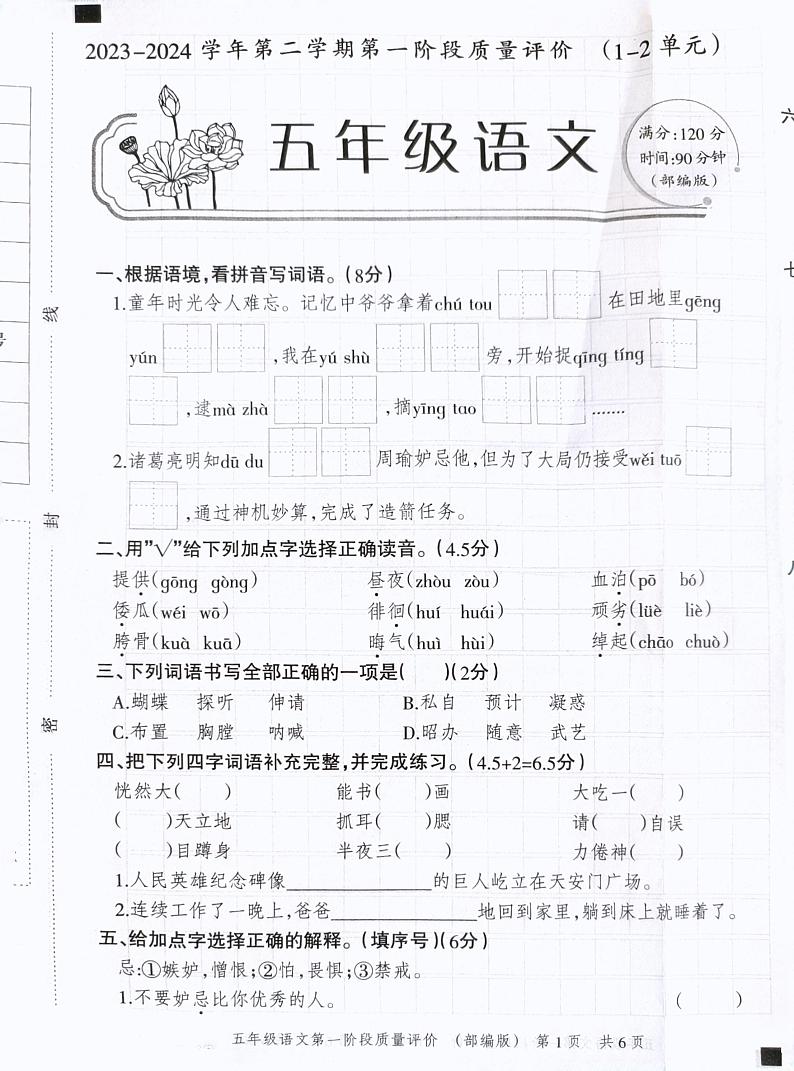 2023-2024 学年第二学期第一阶段质量评价 (1-2 单元)
五年级语文
满分:120 分
时间:90 分钟
(部编版)
一、根据语境,看拼音写词语。(8分)
1.童年时光令人难忘。记忆中爷爷拿着chú tou 在田地里gēng
yún ,我在yú shù 旁,开始捉qīng tíng
,逮mà zhà ,摘yīng tao .......
2.诸葛亮明知dū du 周瑜妒忌他,但为了大局仍接受wěi tuō
,通过神机妙算,完成了造箭任务。
二、用"√"给下列加点字选择正确读音。(4.5分)
提供(gōng gòng) 昼夜(zhòu zòu) 血泊(pō bó)
倭瓜(wéi wō) 徘徊(huí huái) 顽劣(lüè liè)
胯骨(kuà kuā) 晦气(huì hùi) 绰起(chāo chuò)
三、下列词语书写全部正确的一项是( )(2分)
A.蝴蝶 探听 伸请 B.私自 预计 凝惑
C.布置 胸膛 呐喊 D.昭办 随意 武艺
四、把下列四字词语补充完整,并完成练习。(4.5+2=6.5分)
恍然大( ) 能书( )画 大吃一( )
( )天立地 抓耳( )腮 请( )自误
( )目蹲身 半夜三( ) 力倦神( )
1.人民英雄纪念碑像______________的巨人屹立在天安门广场。
2.连续工作了一晚上,爸爸______________地回到家里,躺到床上就睡着了。
五、给加点字选择正确的解释。(填序号)(6分)
忌:①嫉妒,憎恨;②怕,畏惧;③禁戒。
1.不要妒忌比你优秀的人。 ( )
五年级语文第一阶段质量评价 (部编版) 第 1 页 共 6 页
线
封
密
六
七
八